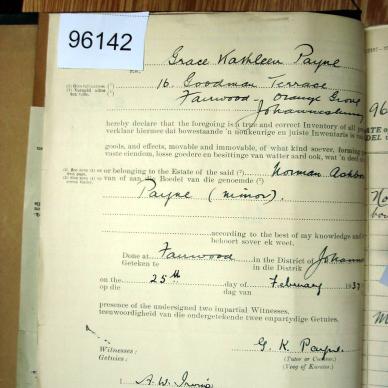 96142
Grace Kathleen Payne
16. Goodman Terrace
Fairwood Orange Grove
Johannesburg
hereby declare that the foregoing is a true and correct Inventory of all
verklaar hiermee dat bovestaande 'n noukeurige en juiste Inventaris is van
goods, and effects, movable and immovable, of what kind soever, forming
vaste eiendom, losse goedere en besittings van watter aard ook, wat 'n deel
or belonging to the Estate of the said (²) Norman
van of aan die Boedel van die genoemde (²)
Payne (minor).
according to the best of my knowledge and
behoort sover ek weet.
Done at Fairwood in the District of
Geteken te in die Distrik
on the 25th day of February 1937
op die dag van
presence of the undersigned two impartial Witnesses.
teenwoordigheid van die ondergetekende twee onpartydige Getuies.
G. K. Payne
Witnesses:
(Tutor or Curator.)
Getuies:
(Voog of Kurator.)
A. W.
96